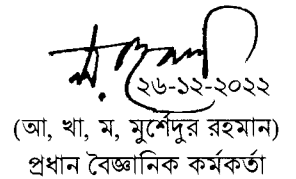 ২৬-১২-২০২২
(আ, খা, ম, মুর্শেদুর রহমান)
প্রধান বৈজ্ঞানিক কর্মকর্তা